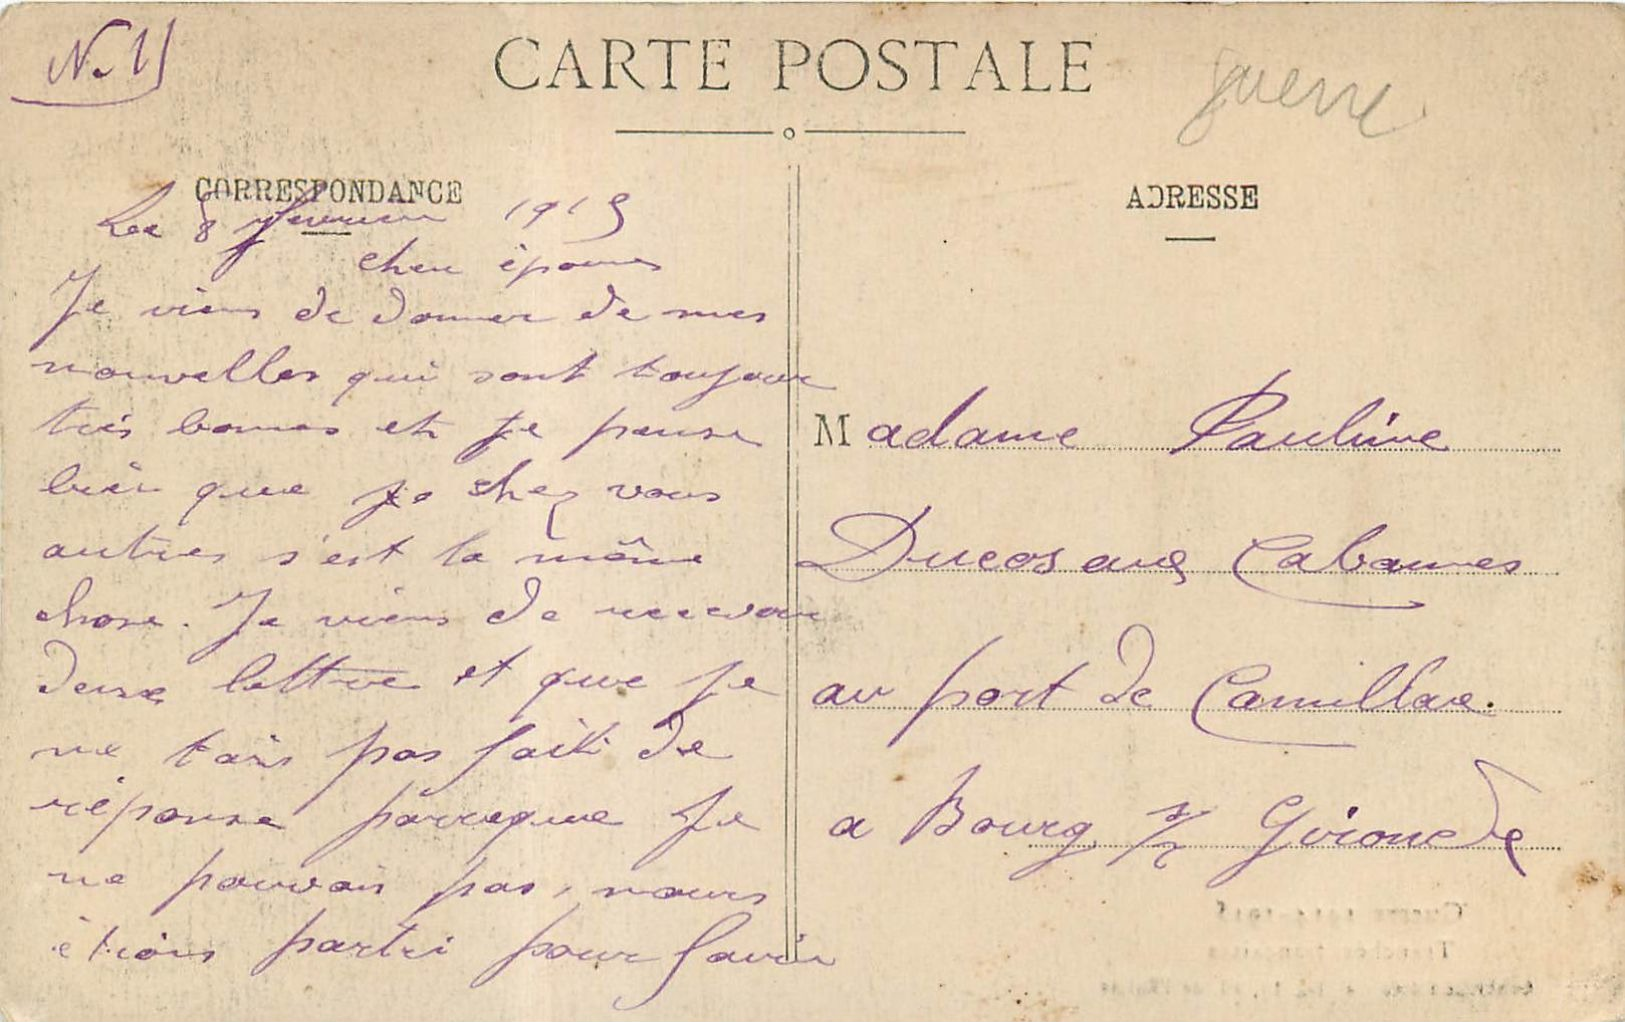 N. 11
CARTE POSTALE
guerre
CORRESPONDANCE
Le 8 fevrier 1915
cher épouse
Je viens de donner de mes
nouvelles qui sont toujour
très bonnes et Je pense
bien que je chez vous
autres s'est la même
chose. Je viens de recevoir
deux lettre et que Je
ne tais pas fait de
réponse parceque Je
ne pouvais pas, nous
étions partri pour
ADRESSE
Madame Pauline
Ducos aux Cabannes
au port de Camillac.
a Bourg s/ Gironde